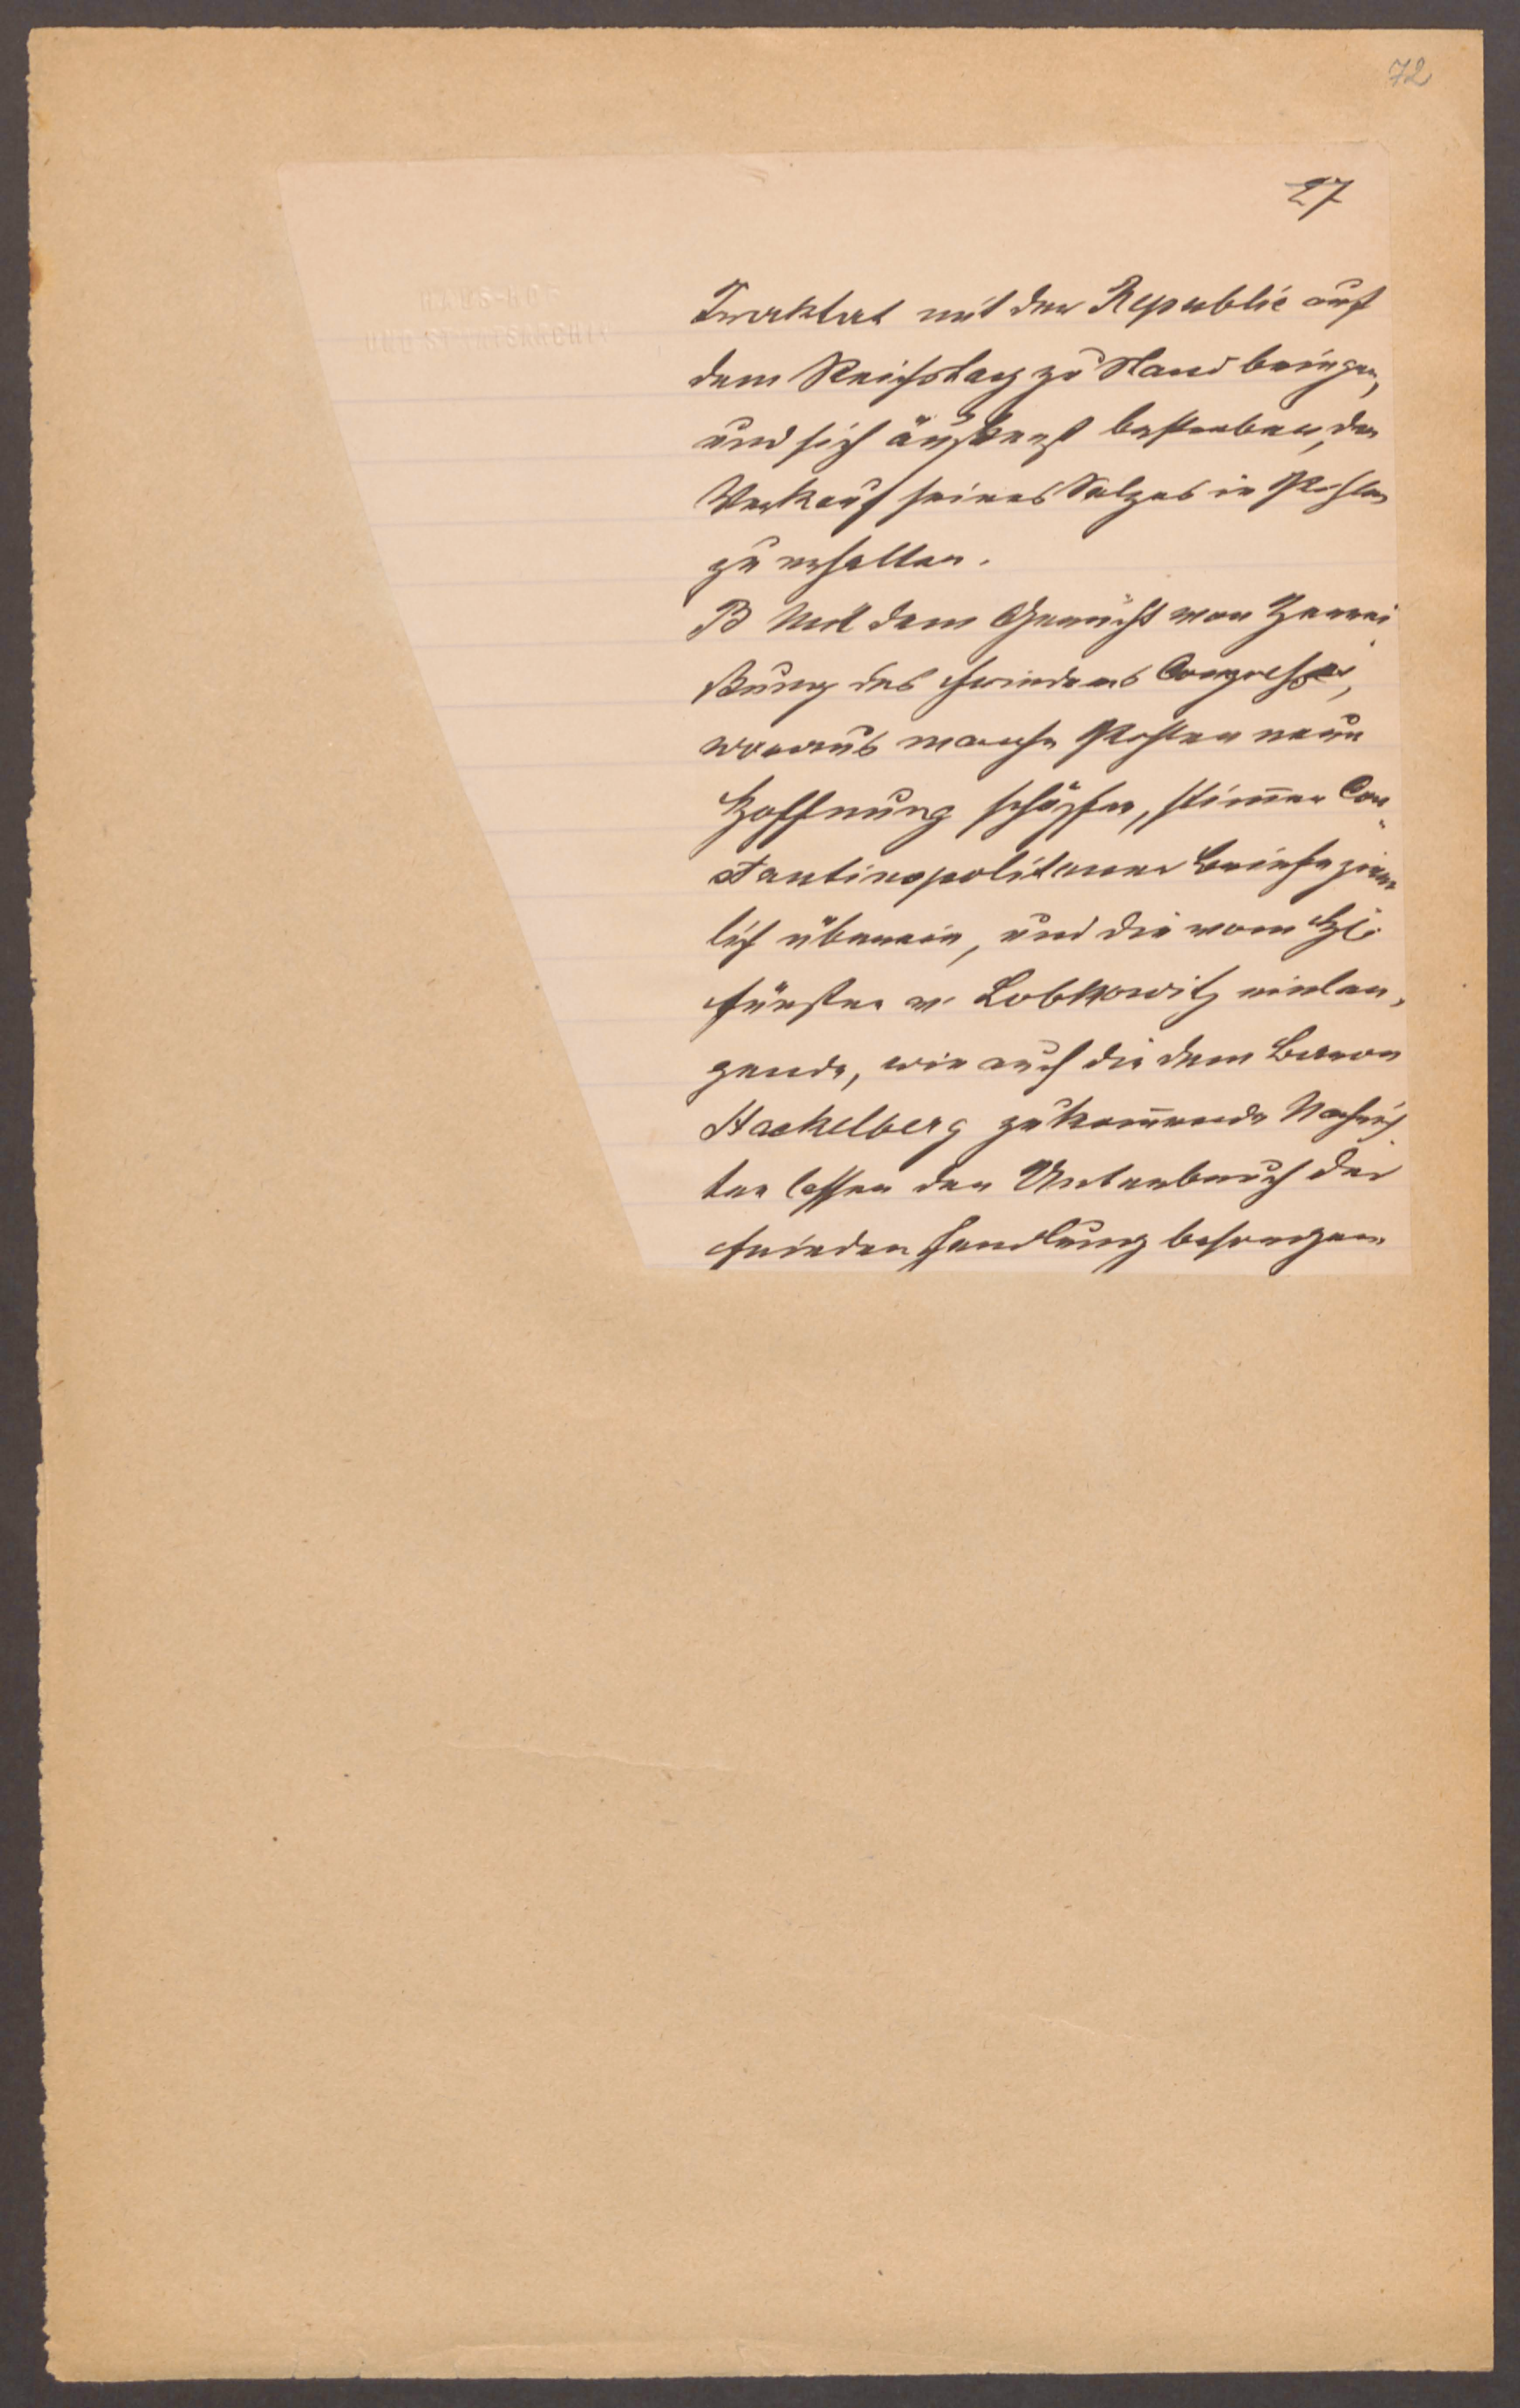 72
27
HAUS-HOF
UND STAATSARCHIV
Traktat mit der Republic auf
dem Reichstag zu Stand bringen,
und sich äußerst bestreben, den
Verkauf seines Salzes in Pohlen
zu erhalten.
B Mit dem Gerücht von Zerrei
ßung des Friedens Congresses,
woraus manche Pohlen neue
Hoffnung schöpfen, stimmen Con
stantinopolitaner Briefe ziem
lich überein, und die vom H:
Fürsten v. Lobkowitz einlan,
gende, wie auch die dem Baron
Stackelberg zukom̄ende Nachrich
ten lassen den Unterbruch der
Friedenshandlung besorgen.